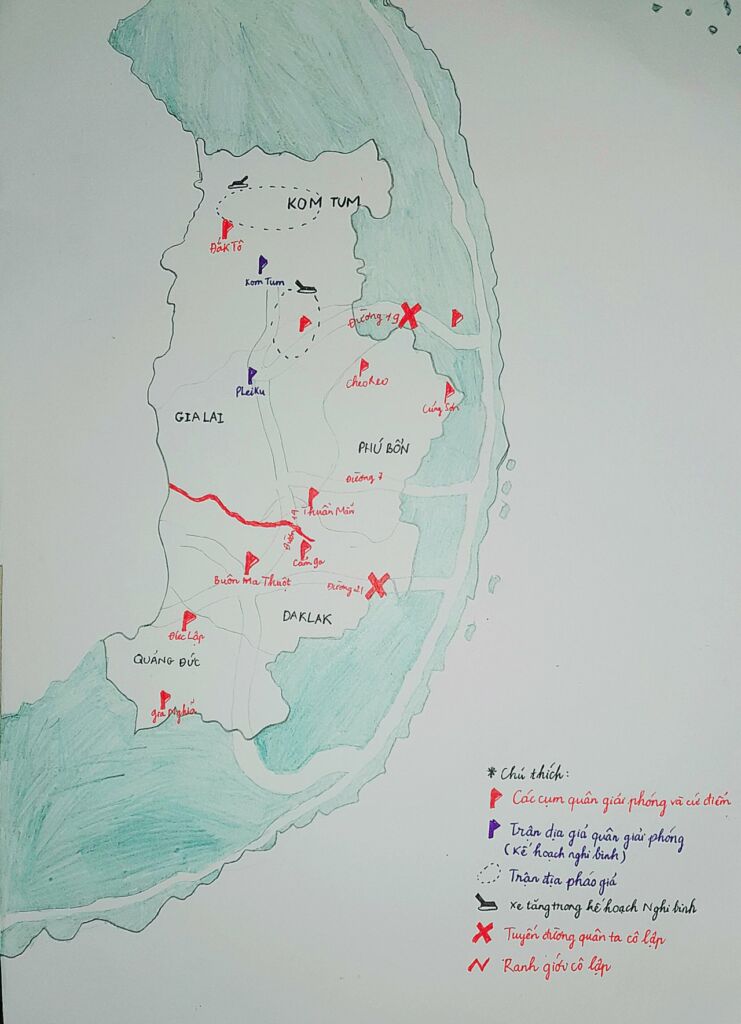 KOM TUM
ĐắK Tô
Kom Tum
Đường 19
PLeiKu
CheoReo
Củng Sơn
GIA LAI
PHÚ BỔN
Đường 7
Thuần Mẫn
Cẩm ga
Buôn Ma Thuột
Đường 21
DAKLAK
Đức Lập
QUẢNG ĐỨC
gia Nghĩa
* Chú thích:
Các cụm quân giải phóng và cứ điểm
Trận địa giả quân giải phóng
(Kế hoạch nghi binh)
Trận địa pháo giả
Xe tăng trong kế hoạch Nghi binh
Tuyến đường quân ta cô lập
Ranh giới cô lập